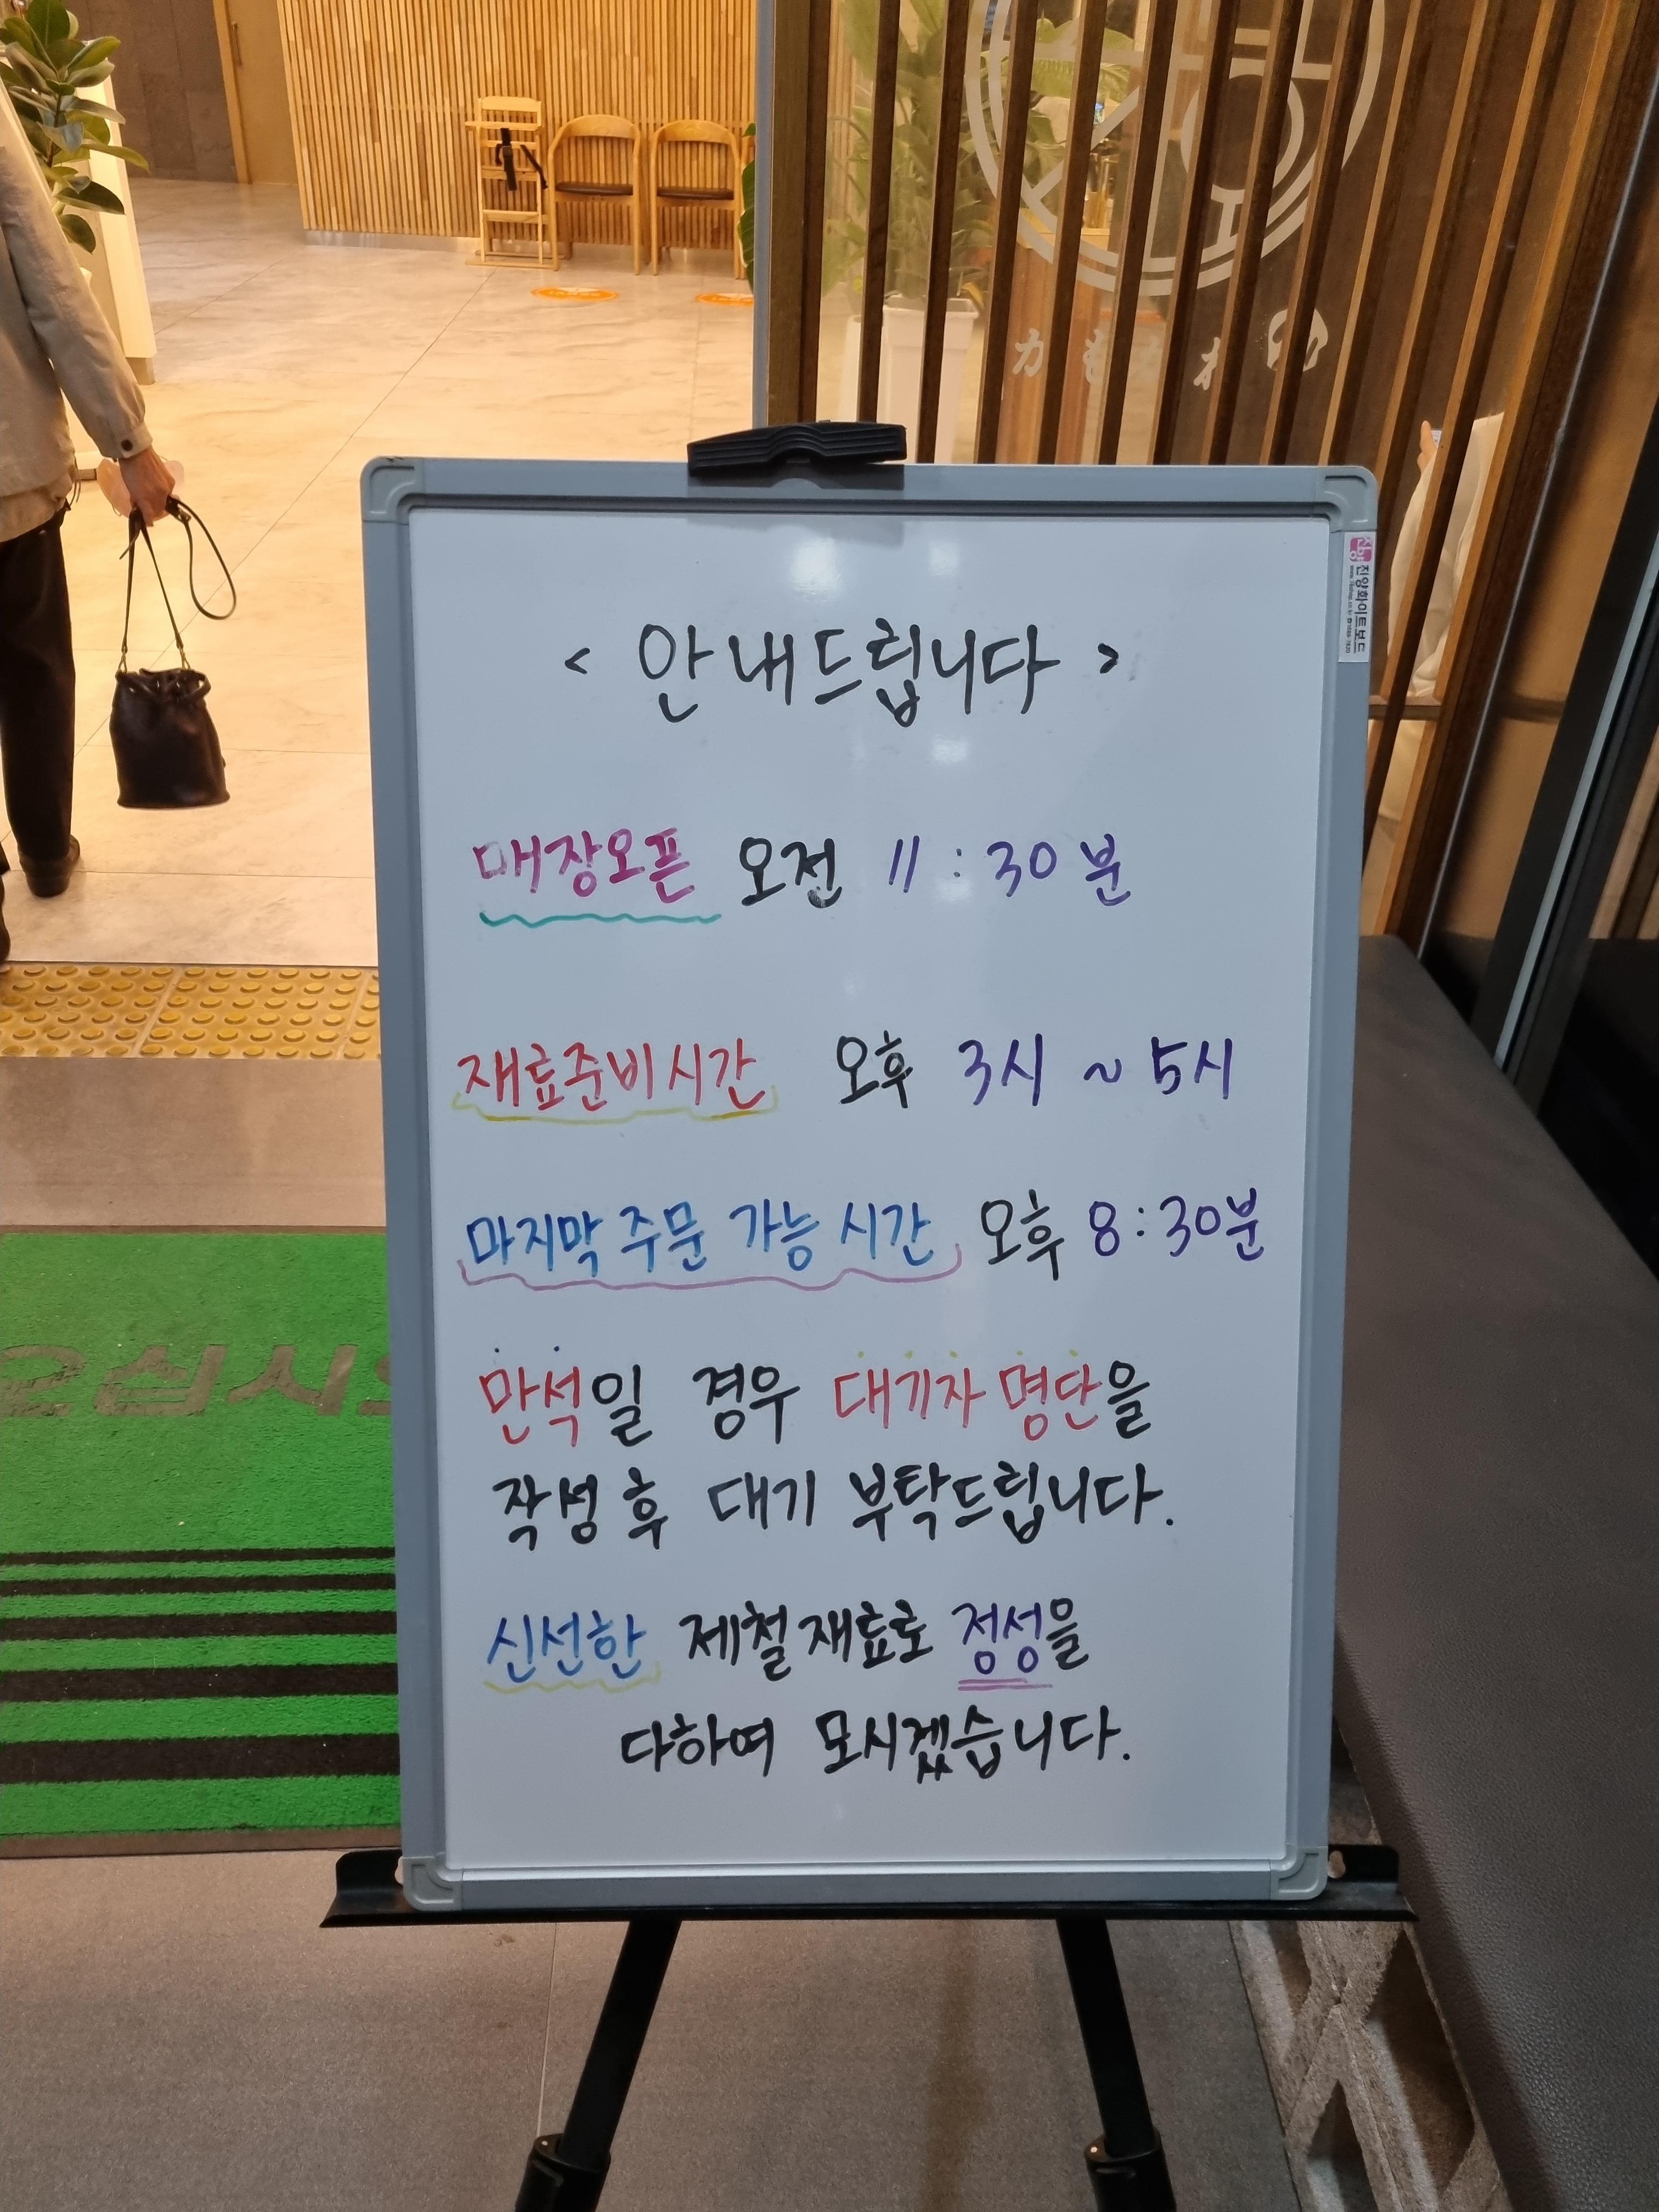 < 안내드립니다 >
매장오픈 오전 11:30분
재료준비시간 오후 3시 ~ 5시
마지막 주문 가능 시간 오후 8:30분
만석일 경우 대기자 명단을
작성 후 대기 부탁드립니다.
신선한 제철 재료로 정성을
다하여 모시겠습니다.
진양화이트보드